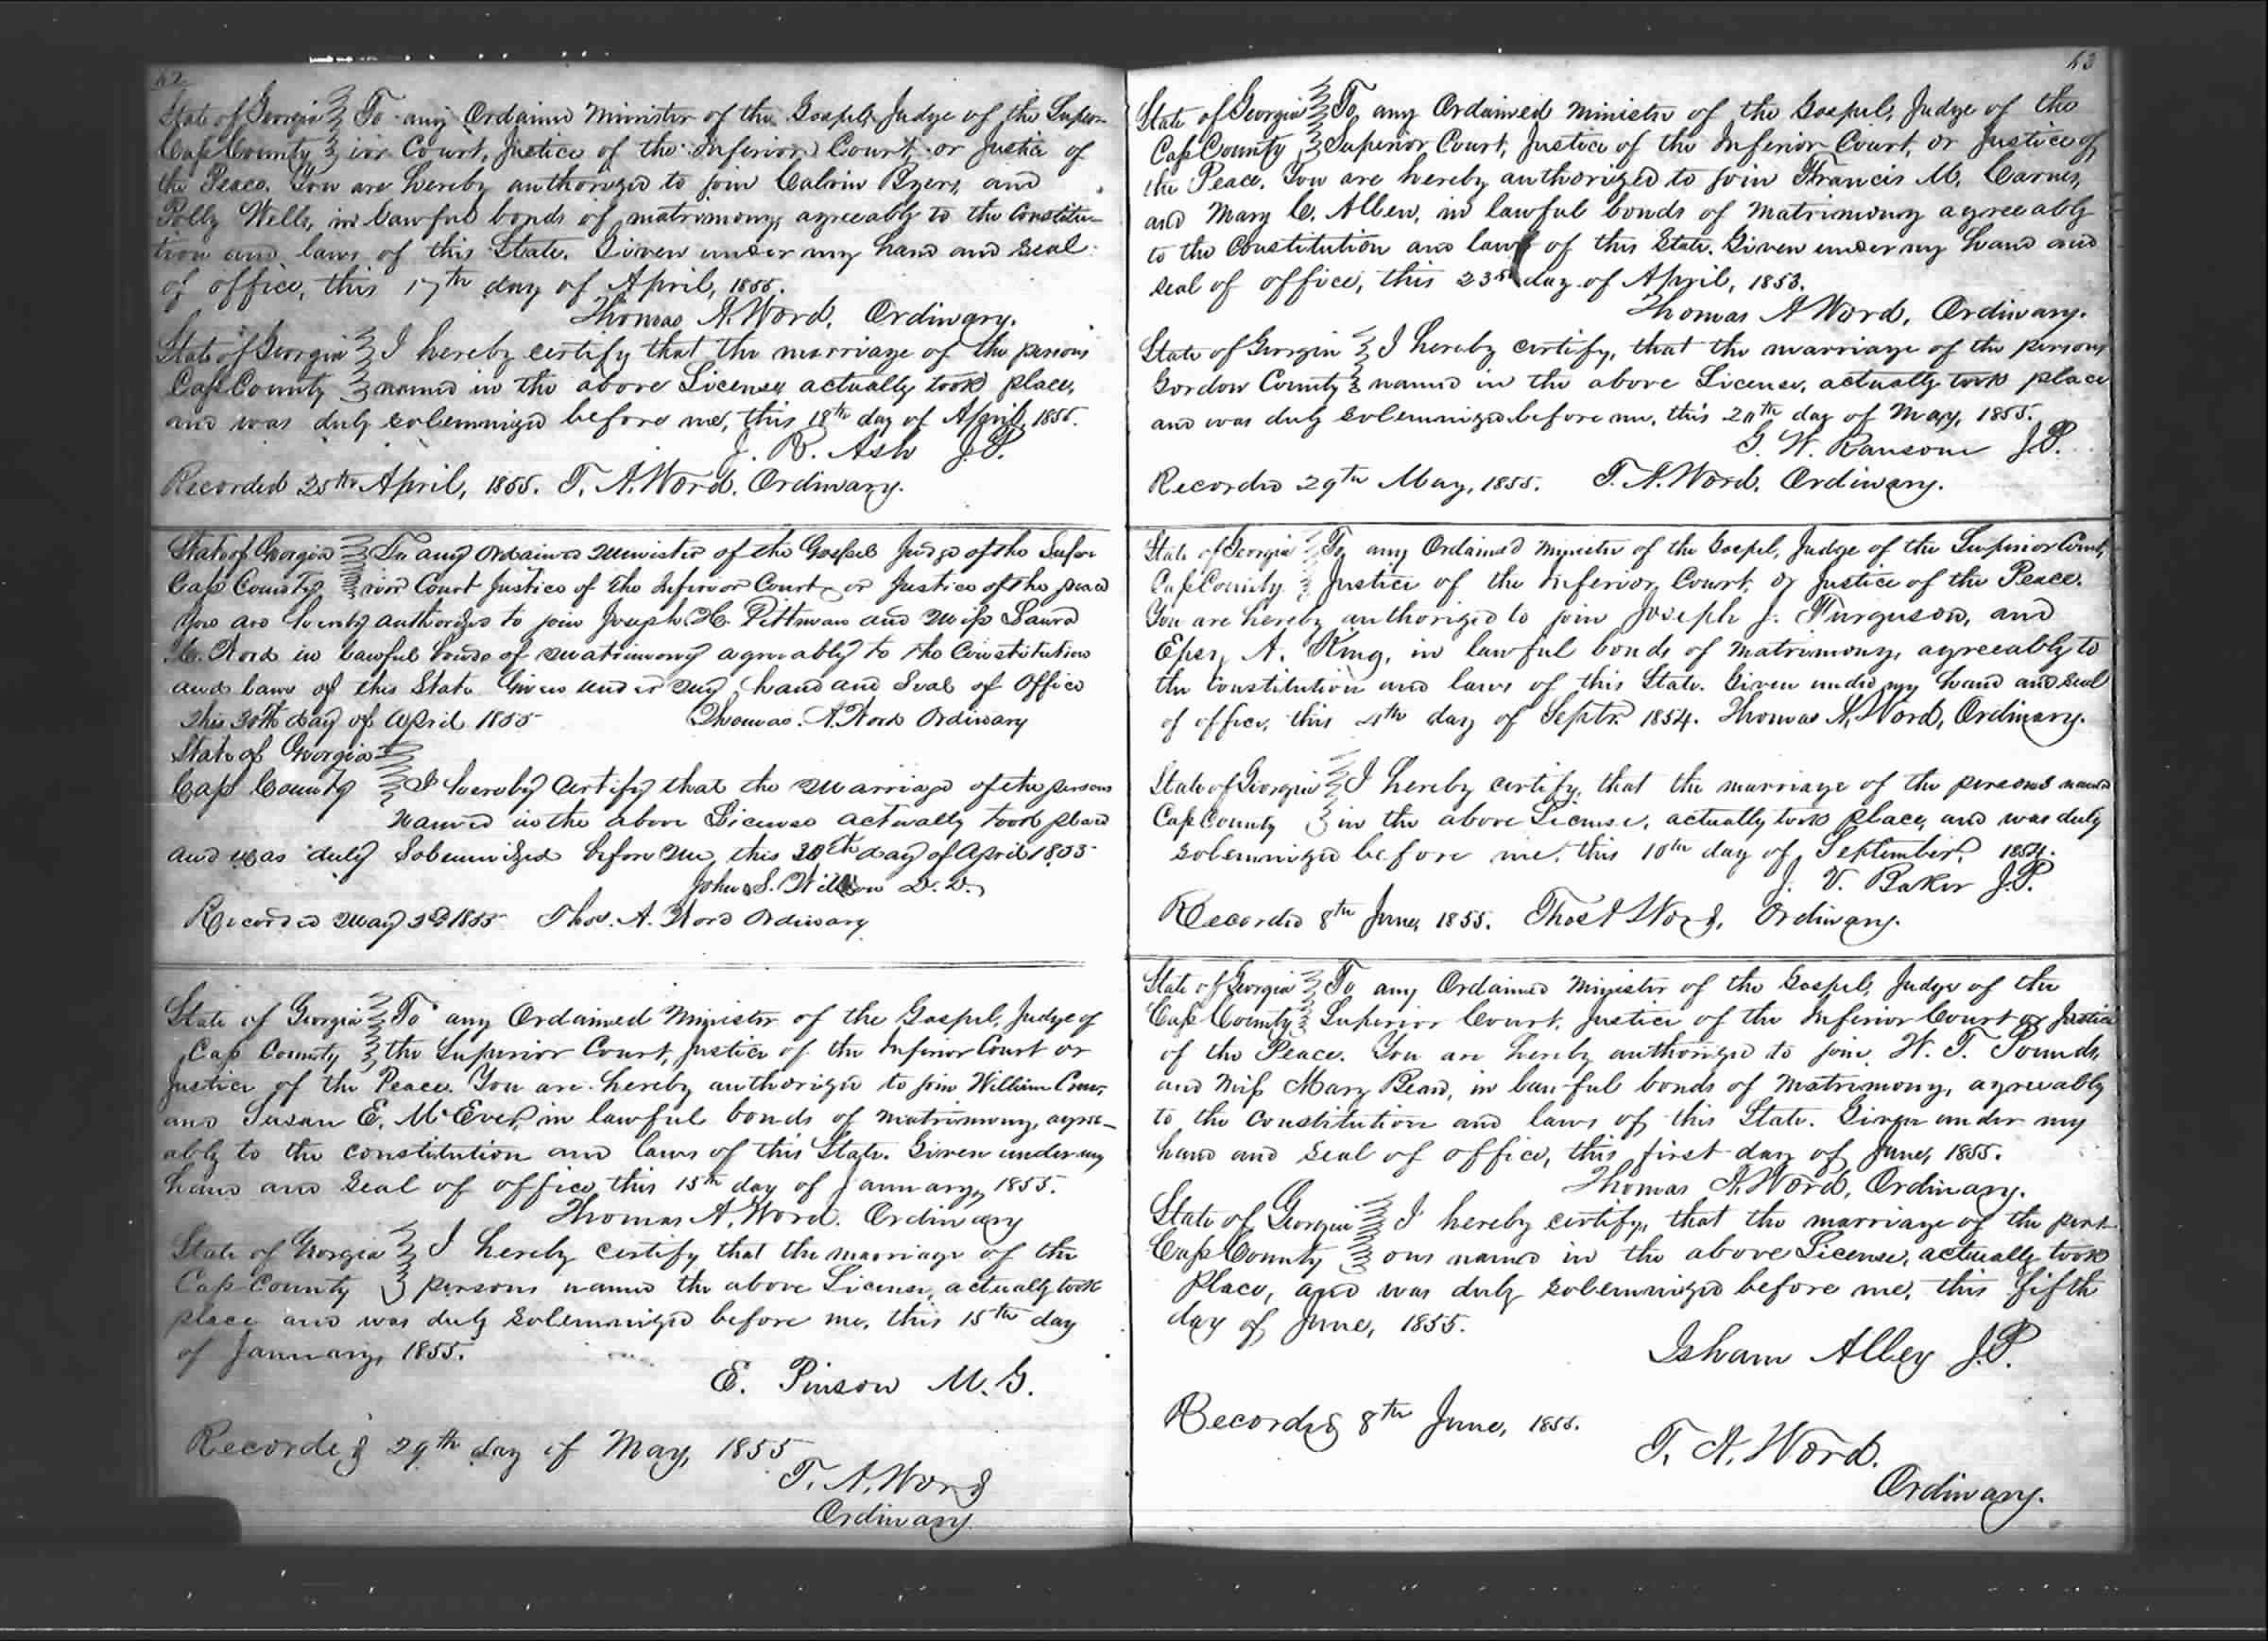 62
State of Georgia To any Ordained Minister of the Gospel, Judge of the Super-
Cass County ior Court, Justice of the Inferior Court, or Justice of
the Peace. You are hereby authorized to join Calvin Byers, and
Polly Wells, in lawful bonds of matrimony, agreeably to the Constitu-
tion and laws of this State. Given under my hand and seal
of office, this 17th day of April, 1855.
Thomas A. Word, Ordinary.
State of Georgia I hereby certify that the marriage of the persons
Cass County named in the above License, actually took place,
and was duly solemnized before me, this 18th day of April, 1855.
J. R. Ash J.P.
Recorded 25th April, 1855. T. A. Word, Ordinary.
State of Georgia To any Ordained Minister of the Gospel Judge of the Supe
Cass County rior Court Justice of the Inferior Court or Justice of the peace
You are hereby authorized to join Joseph H. Pittman and Miss Laura
Word in lawful bonds of matrimony agreeably to the Constitution
and laws of this State Given under my hand and Seal of Office
this 30th day of April 1855 Thomas. A. Word Ordinary
State of Georgia
Cass County I hereby Certify that the Marriage of the persons
named in the above License actually took place
and was duly Solemnized before me, this 30th day of April 1855
John S. Wilson D.D.
Recorded May 3d 1855 Thos. A. Word Ordinary
State of Georgia To any Ordained Minister of the Gospel, Judge of
Cass County the Superior Court, Justice of the Inferior Court or
Justice of the Peace. You are hereby authorized to join William
and Susan E. McEver, in lawful bonds of matrimony, agree-
ably to the constitution and laws of this State. Given under my
hand and seal of office, this 15th day of January, 1855.
Thomas A. Word. Ordinary
State of Georgia I hereby certify that the marriage of the
Cass County persons named the above License, actually took
place and was duly solemnized before me, this 15th day
of January, 1855.
E. Pinson M.G.
Recorded 29th day of May, 1855
T. A. Word
Ordinary
63
State of Georgia To any Ordained Minister of the Gospel, Judge of the
Cass County Superior Court, Justice of the Inferior Court, or Justice of
the Peace. You are hereby authorized to join Francis M. Carnes,
and Mary C. Allen, in lawful bonds of matrimony agreeably
to the Constitution and laws of this State. Given under my hand and
seal of office, this 23rd day of April, 1853.
Thomas A Word, Ordinary.
State of Georgia I hereby certify, that the marriage of the persons
Gordon County named in the above License, actually took place
and was duly solemnized before me, this day of May, 1855.
G. W. Ransom J.P.
Recorded 29th May, 1855. T. A. Word, Ordinary.
State of Georgia To any Ordained Minister of the Gospel, Judge of the Superior Court,
Cass County Justice of the Inferior Court, or Justice of the Peace.
You are hereby authorized to join Joseph J. Furguson, and
A. King, in lawful bonds of matrimony, agreeably to
the Constitution and laws of this State. Given under my hand and seal
of office, this 4th day of Septr. 1854. Thomas A. Word, Ordinary.
State of Georgia I hereby certify, that the marriage of the persons named
Cass County in the above License, actually took place, and was duly
solemnized before me, this 10th day of September, 1854.
J. V. Baker J.P.
Recorded 8th June, 1855. Thos A Word, Ordinary.
State of Georgia To any Ordained Minister of the Gospel, Judge of the
Cass County Superior Court, Justice of the Inferior Court or Justice
of the Peace. You are hereby authorized to join W. T. Pounds,
and Miss Mary Bead, in lawful bonds of matrimony, agreeably
to the constitution and laws of this State. Given under my
hand and seal of office, this first day of June, 1855.
Thomas A. Word, Ordinary.
State of Georgia I hereby certify, that the marriage of the pers-
Cass County ons named in the above License, actually took
place, and was duly solemnized before me, this fifth
day of June, 1855.
Isham Alley J.P.
Recorded 8th June, 1855.
T. A. Word.
Ordinary.